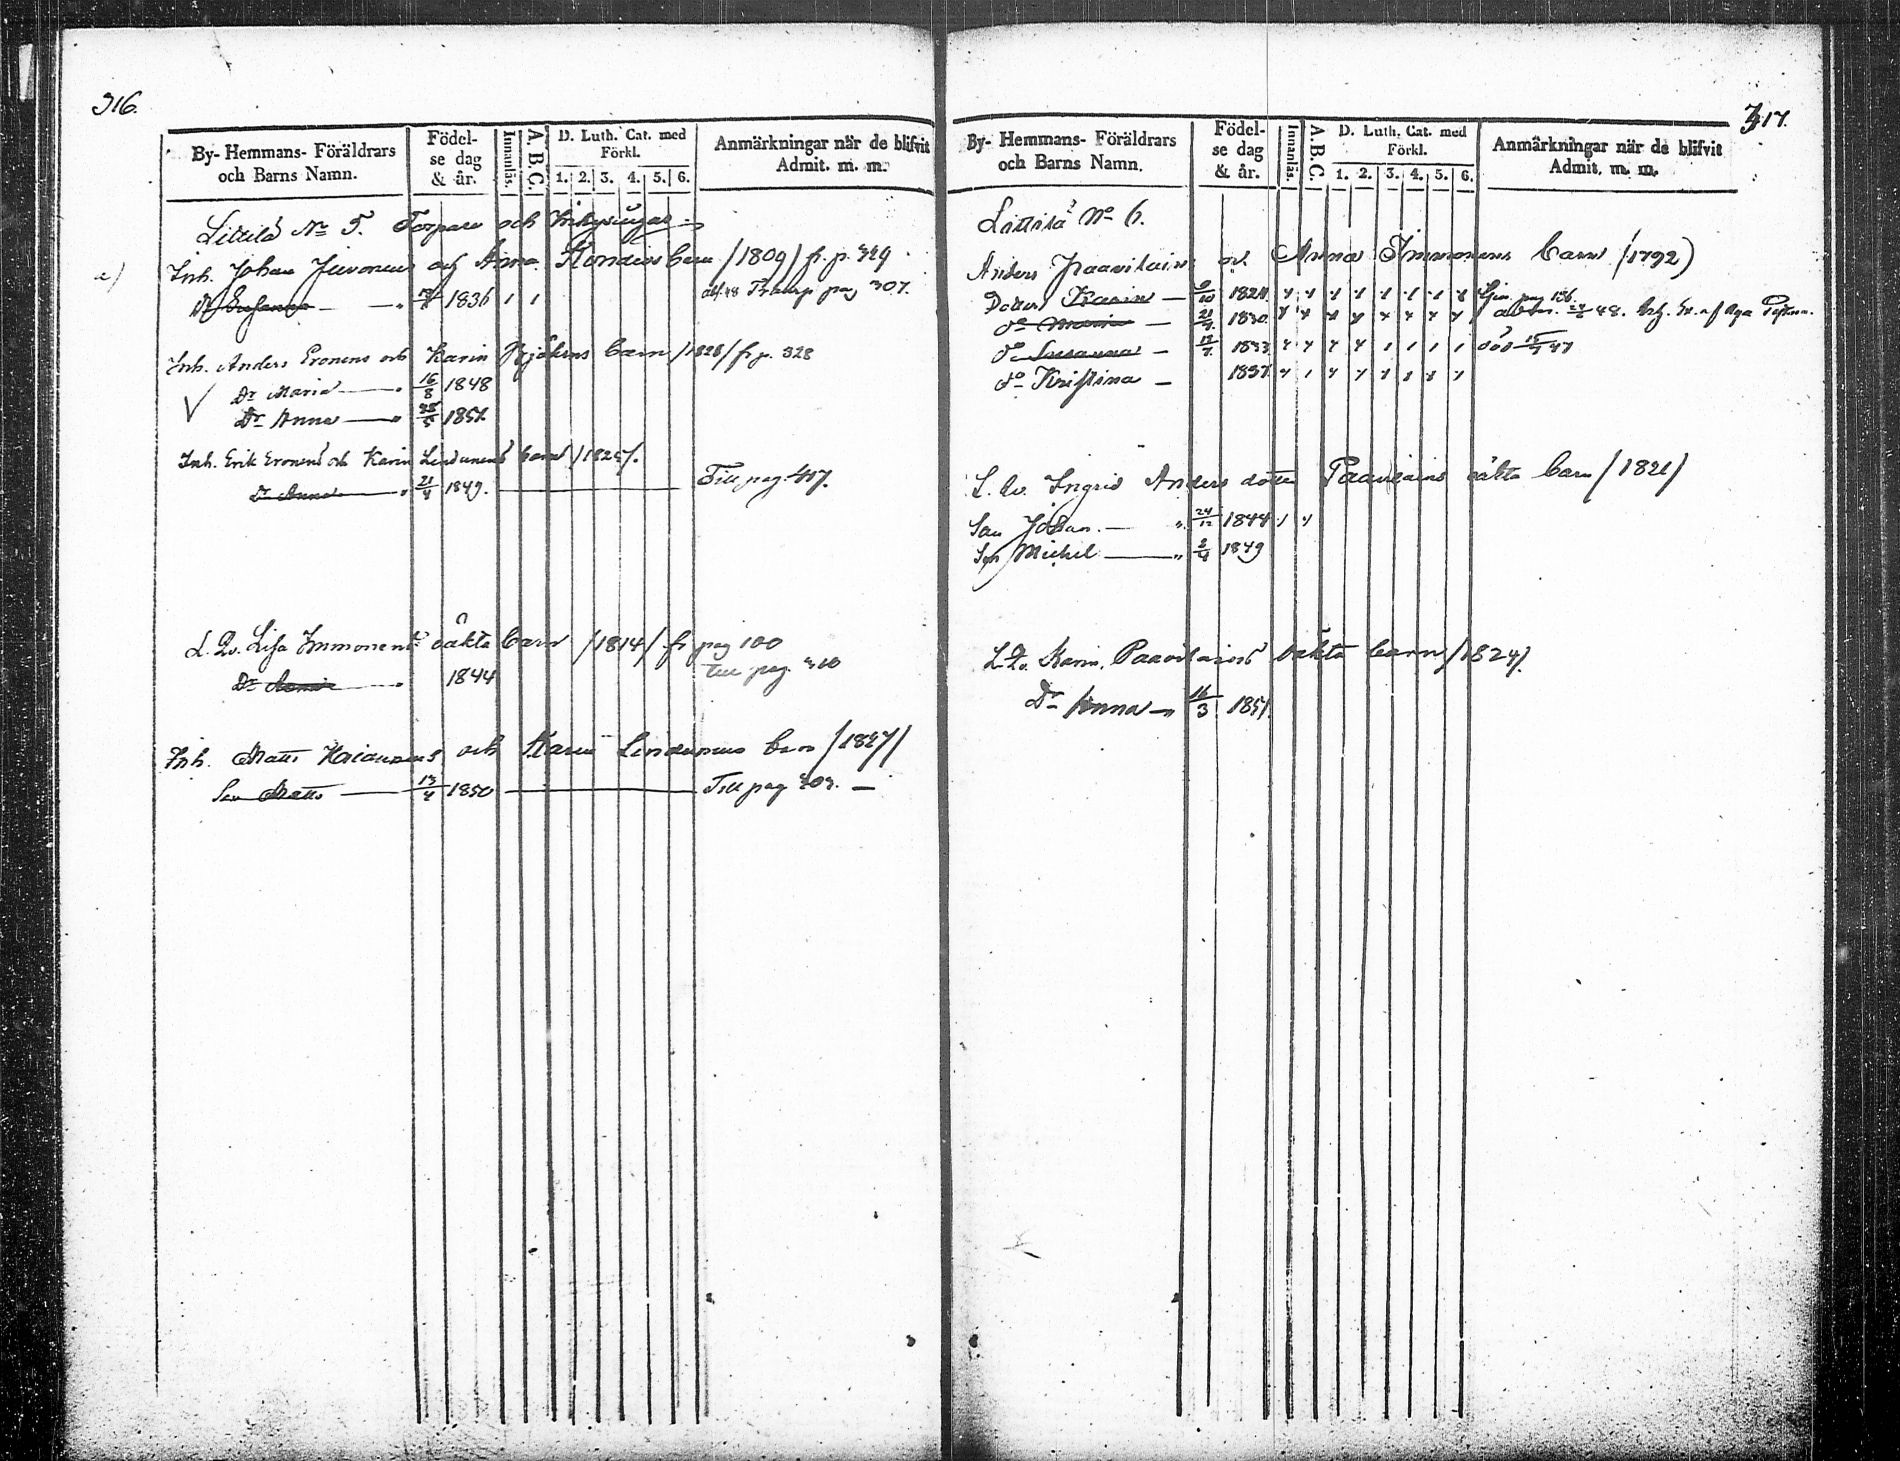 316.
By- Hemmans- Föräldrars och Barns Namn.
Födel- se dag & år.
Innanläs.
A. B. C.
D. Luth. Cat. med Förkl.
1. 2. 3. 4. 5. 6.
Anmärkningar när de blifvit Admit. m. m.
Littilä No 5. Torpare och
a)
Inh. Johan Juvonens och Anna Kondies barn /1809/ fr. p. 329
Dr Susanna — " 1836 1 1 pag 307.
Inh. Anders Eronens och Karin barn /1828/ fr p. 328
Dr Maria — " 16/8 1848
Dr Anna — " 1851.
Inh. Erik Eronens och Karin Lindunens barn /1825/.
Dr Anna — " 21/4 1849. — Till pag. 417.
L. Qv. Lisa Immonens oäkta barn /1814/ fr pag 100
Dr — " 1844 till pag 310
Inh. Matts och Karin Lindunens barn /1827/
Son Matts — 13/4 1850 — Till pag 303. —
317.
By- Hemmans- Föräldrars och Barns Namn.
Födel- se dag & år.
Innanläs.
A. B. C.
D. Luth. Cat. med Förkl.
1. 2. 3. 4. 5. 6.
Anmärkningar när de blifvit Admit. m. m.
Littilä No 6.
Anders Paavilains och Anna Immonens barn /1792)
Dotter Karin — 1824 pag 156.
do Maria — 21/ 1830 48.
do Susanna — 1833 död 15/7 47
do Kristina — 1837
L. Qv. Ingrid Anders dotter Paavilains oäkta barn /1821/
Son Johan — " 24/12 1844
Son Michel — " 2/4 1849
L. Qv. Karin Paavilains oäkta barn /1824/.
Dr Anna — " 16/3 1851.